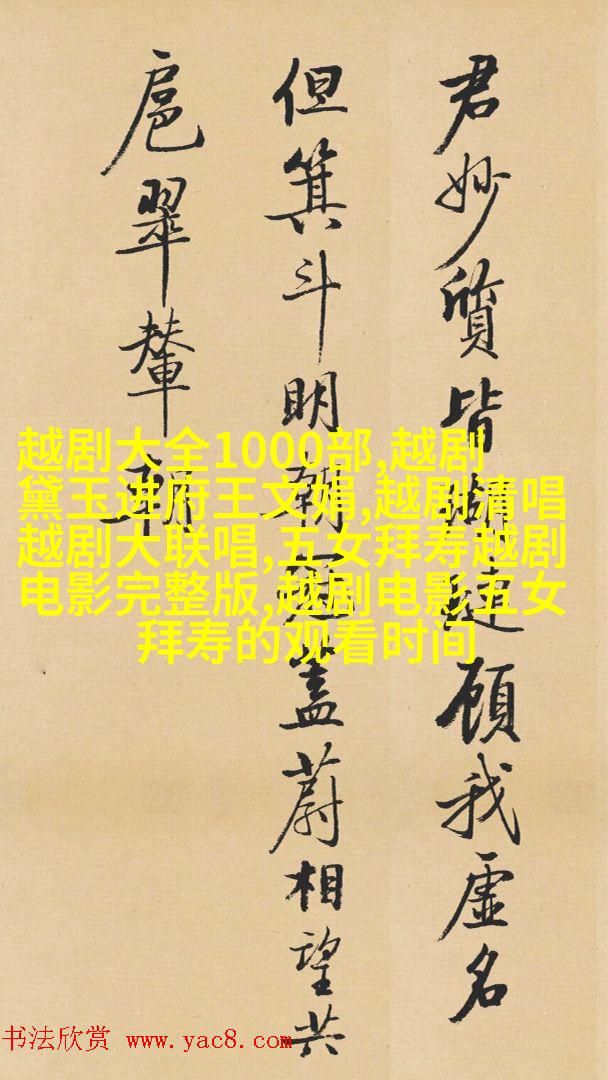 君妙質皆瑚璉顧我虛名
但箕斗明朝冠蓋蔚相望共
扈翠輦朝
越剧大全1000部,越剧
黛玉进府王文娟,越剧清唱
越剧大联唱,五女拜寿越剧
电影完整版,越剧电影五女
拜寿的观看时间
书法欣赏 www.yac8.com